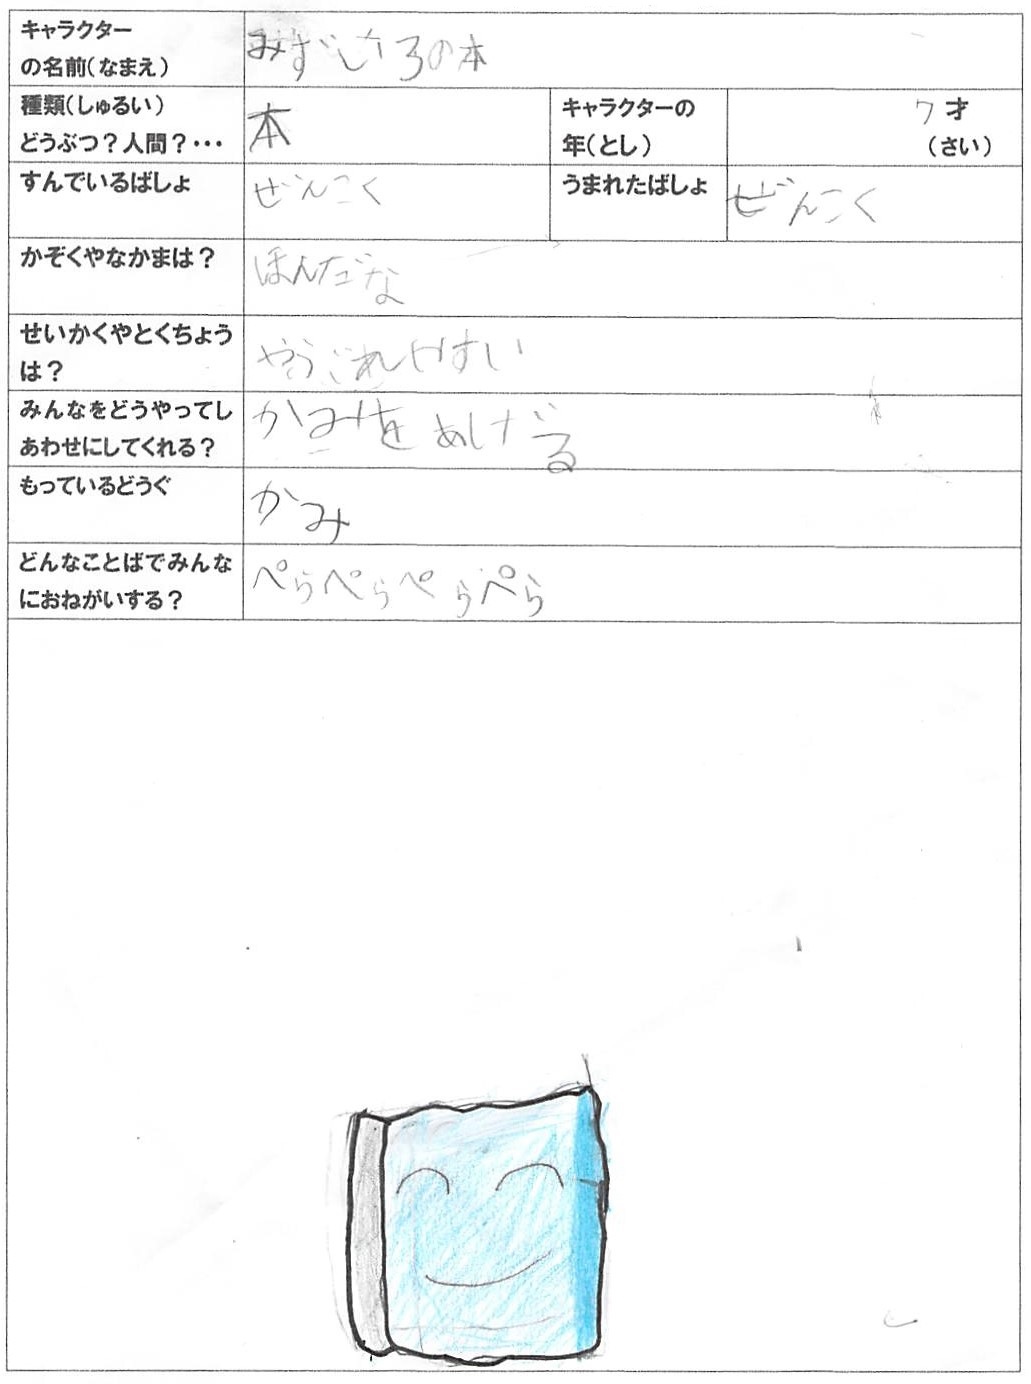 キャラクター
の名前(なまえ)
みずいろの本
種類(しゅるい)
どうぶつ?人間?・・・
本
キャラクターの
年(とし)
7才
(さい)
すんでいるばしょ
ぜんこく
うまれたばしょ
ぜんこく
かぞくやなかまは?
ほんだな
せいかくやとくちょう
は?
みんなをどうやってし
あわせにしてくれる?
かみを あげる
もっているどうぐ
かみ
どんなことばでみんな
におねがいする?
ぺらぺらぺらぺら